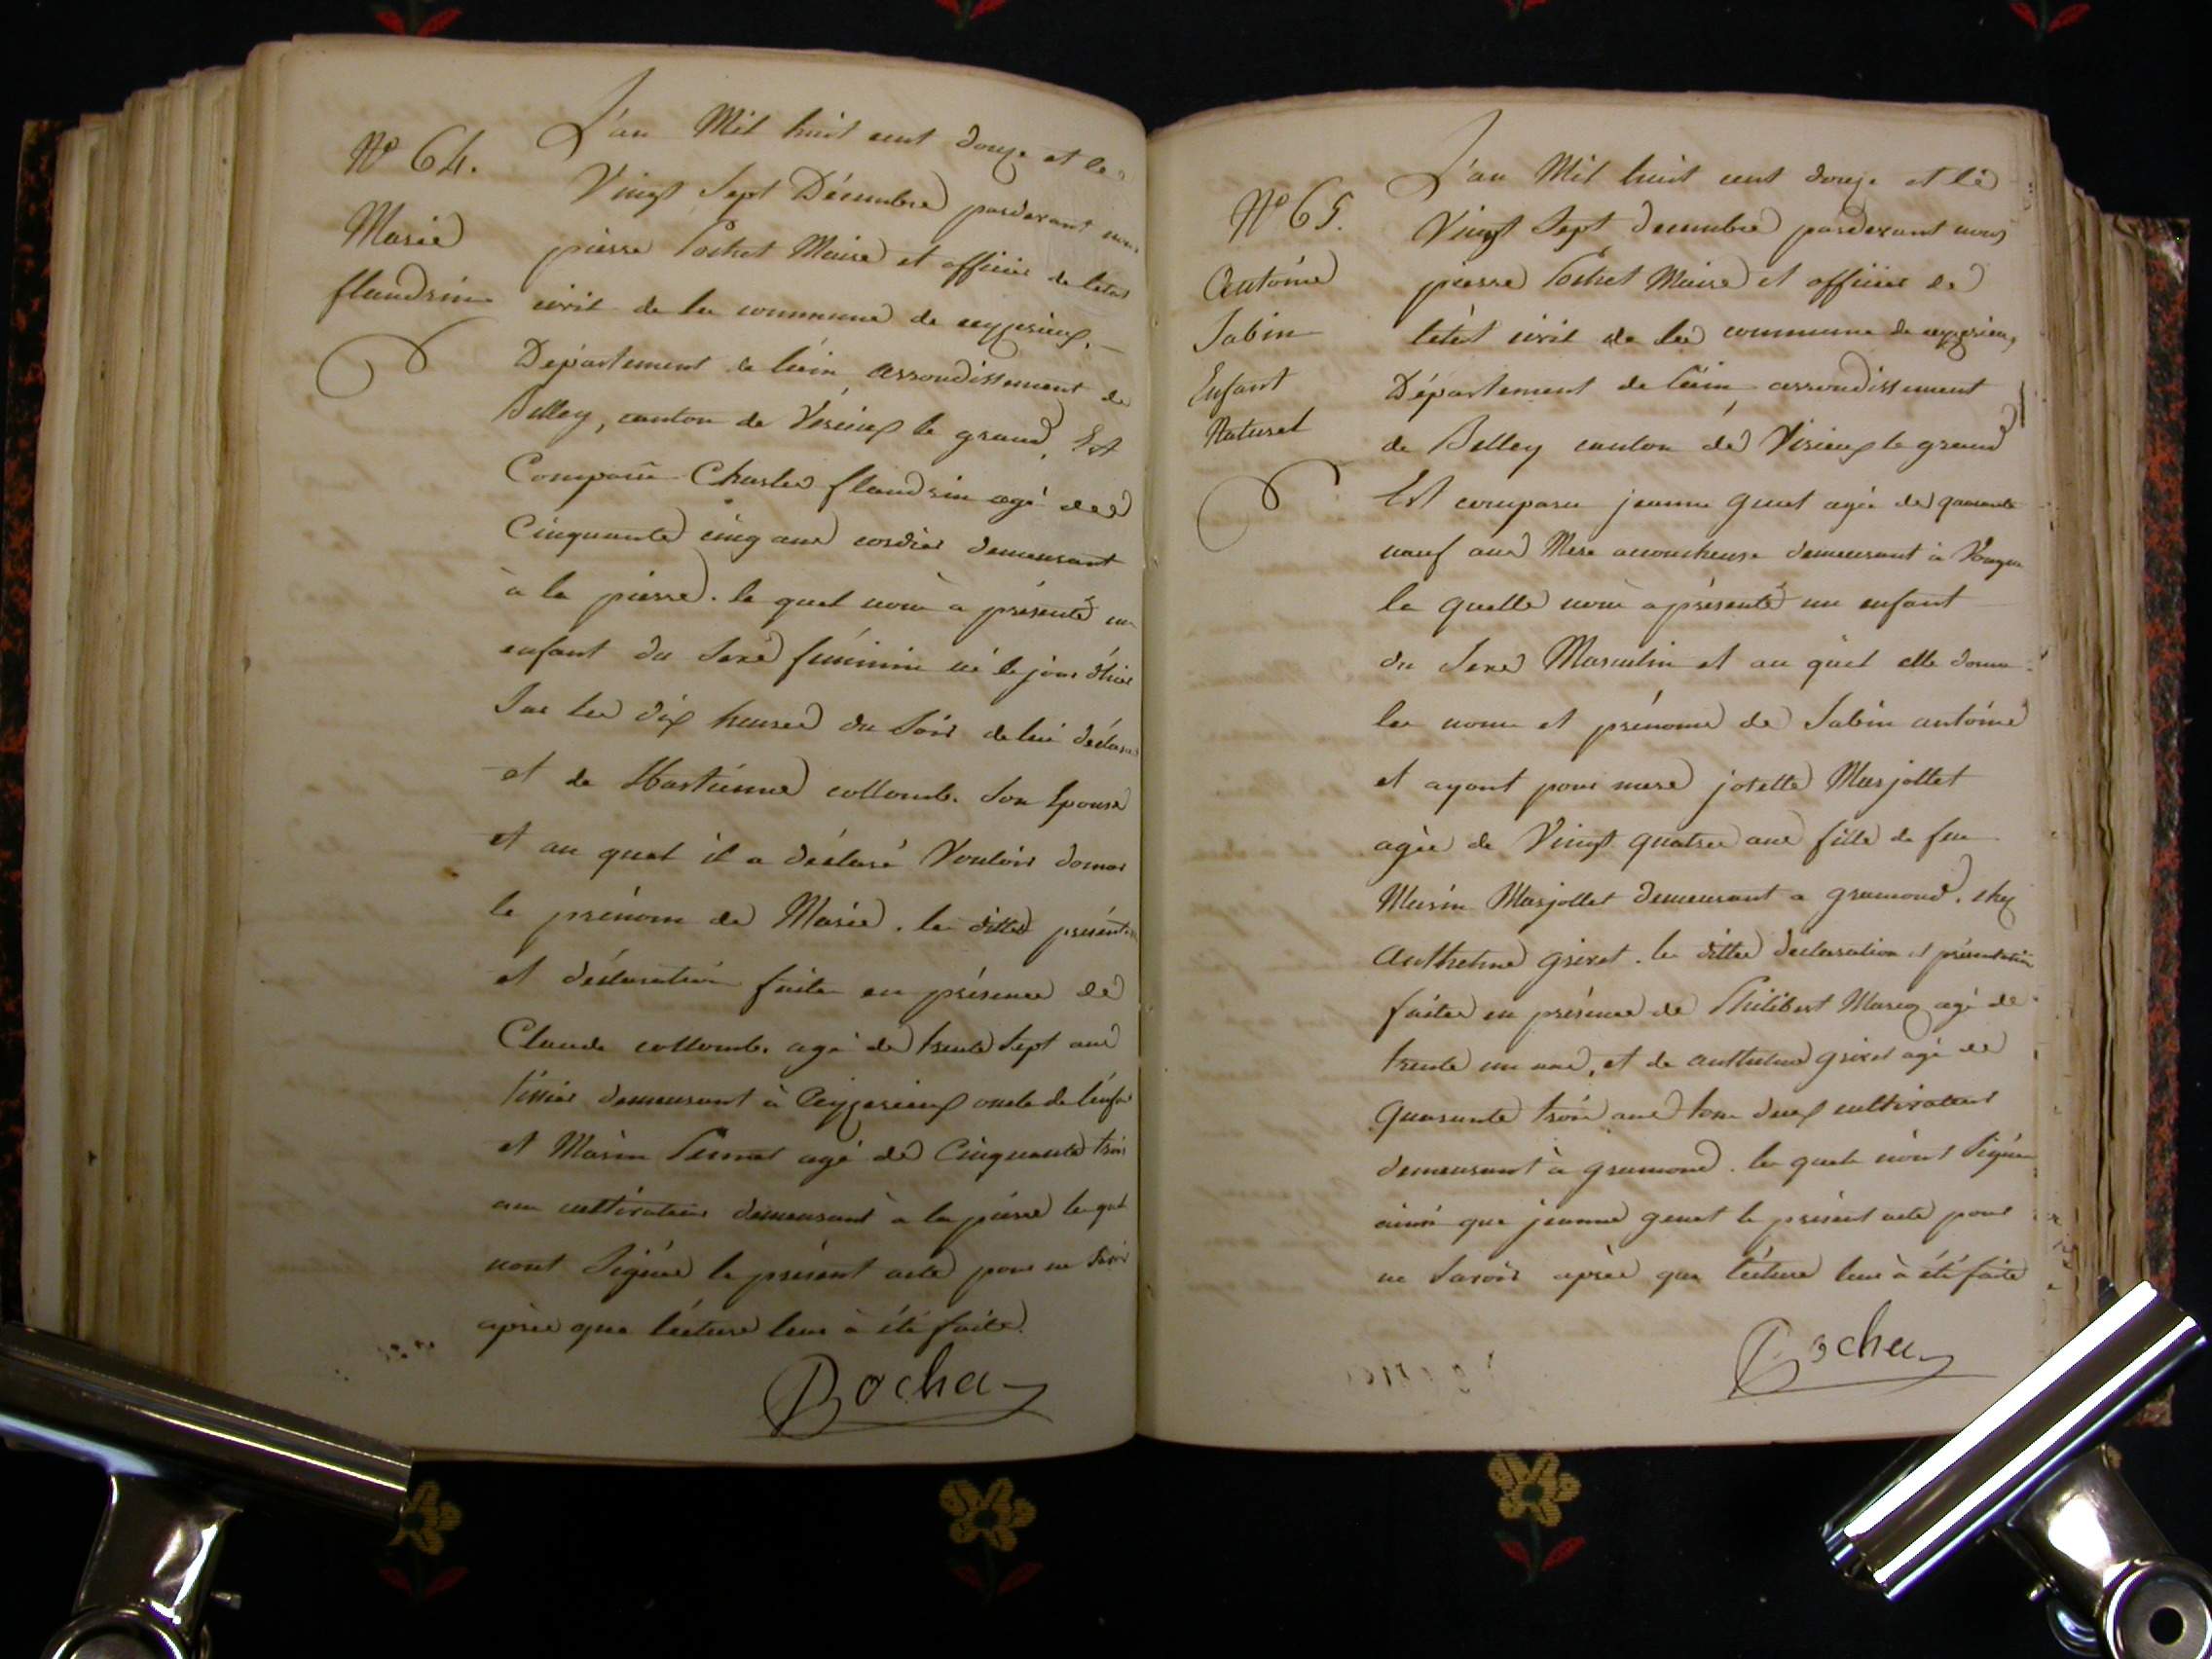 N° 64.
Marie
flandrin
L'an Mil huit cent douze et le
Vingt Sept Décembre pardevant nous
pierre Maire et officier de l'etat
civil de la commune de ceyzerieux.
Département de l'ain, arrondissement de
Belley, canton de Virieux le grand, Est
Comparu Charles flandrin agé de
Cinquante cinq ans cordier demeurant
à la pierre. le quel nous a présenté un
enfant du Sexe féminin né le jour d'hier
Sur les dix heures du Soir de lui déclarant
et de collomb. Son Epouse
et au quel il a déclaré Vouloir donner
le prénom de Marie. la ditte
et déclaration faite en présence de
Claude collomb. agé de trente Sept ans
tissier demeurant à Ceyzerieux oncle de l'enfant
et Marin agé de Cinquante trois
ans cultivateur demeurant à la pierre les quels
n'ont Signés le présent acte pour ne Savoir
après que lécture leur à été faite.
Rocha
N° 65.
Antoine
Sabin
Enfant
Naturel
L'an Mil huit cent douze et lé
Vingt Sept Decembre pardevant nous
pierre Maire et officier de
létat civil de la commune de ceyzerieux
Département de l'ain, arrondissement
de Belley canton dé Virieux le grand
Est comparu jeanne guet agée de quarante
neuf ans Mere accoucheuse demeurant à
la quelle nous a présenté un enfant
du Sexe Masculin et au quel elle donne
les noms et prénoms de Sabin antoine
et ayant pour mere josette Marjollet
agée de Vingt quatre ans fille de feu
Marin Marjollet demeurant a gramond. chez
Anthelme grivet. la ditte declaration et présentation
faite en présence de Philibert agé de
trente un ans, et de anthelme grivet agé de
Quarante trois ans tous deux cultivateurs
demeurant à gramond. les quels n'ont Signés
ainsi que jeanne guet le présent acte pour
ne Savoir après que lécture leur à été faite
Rocha